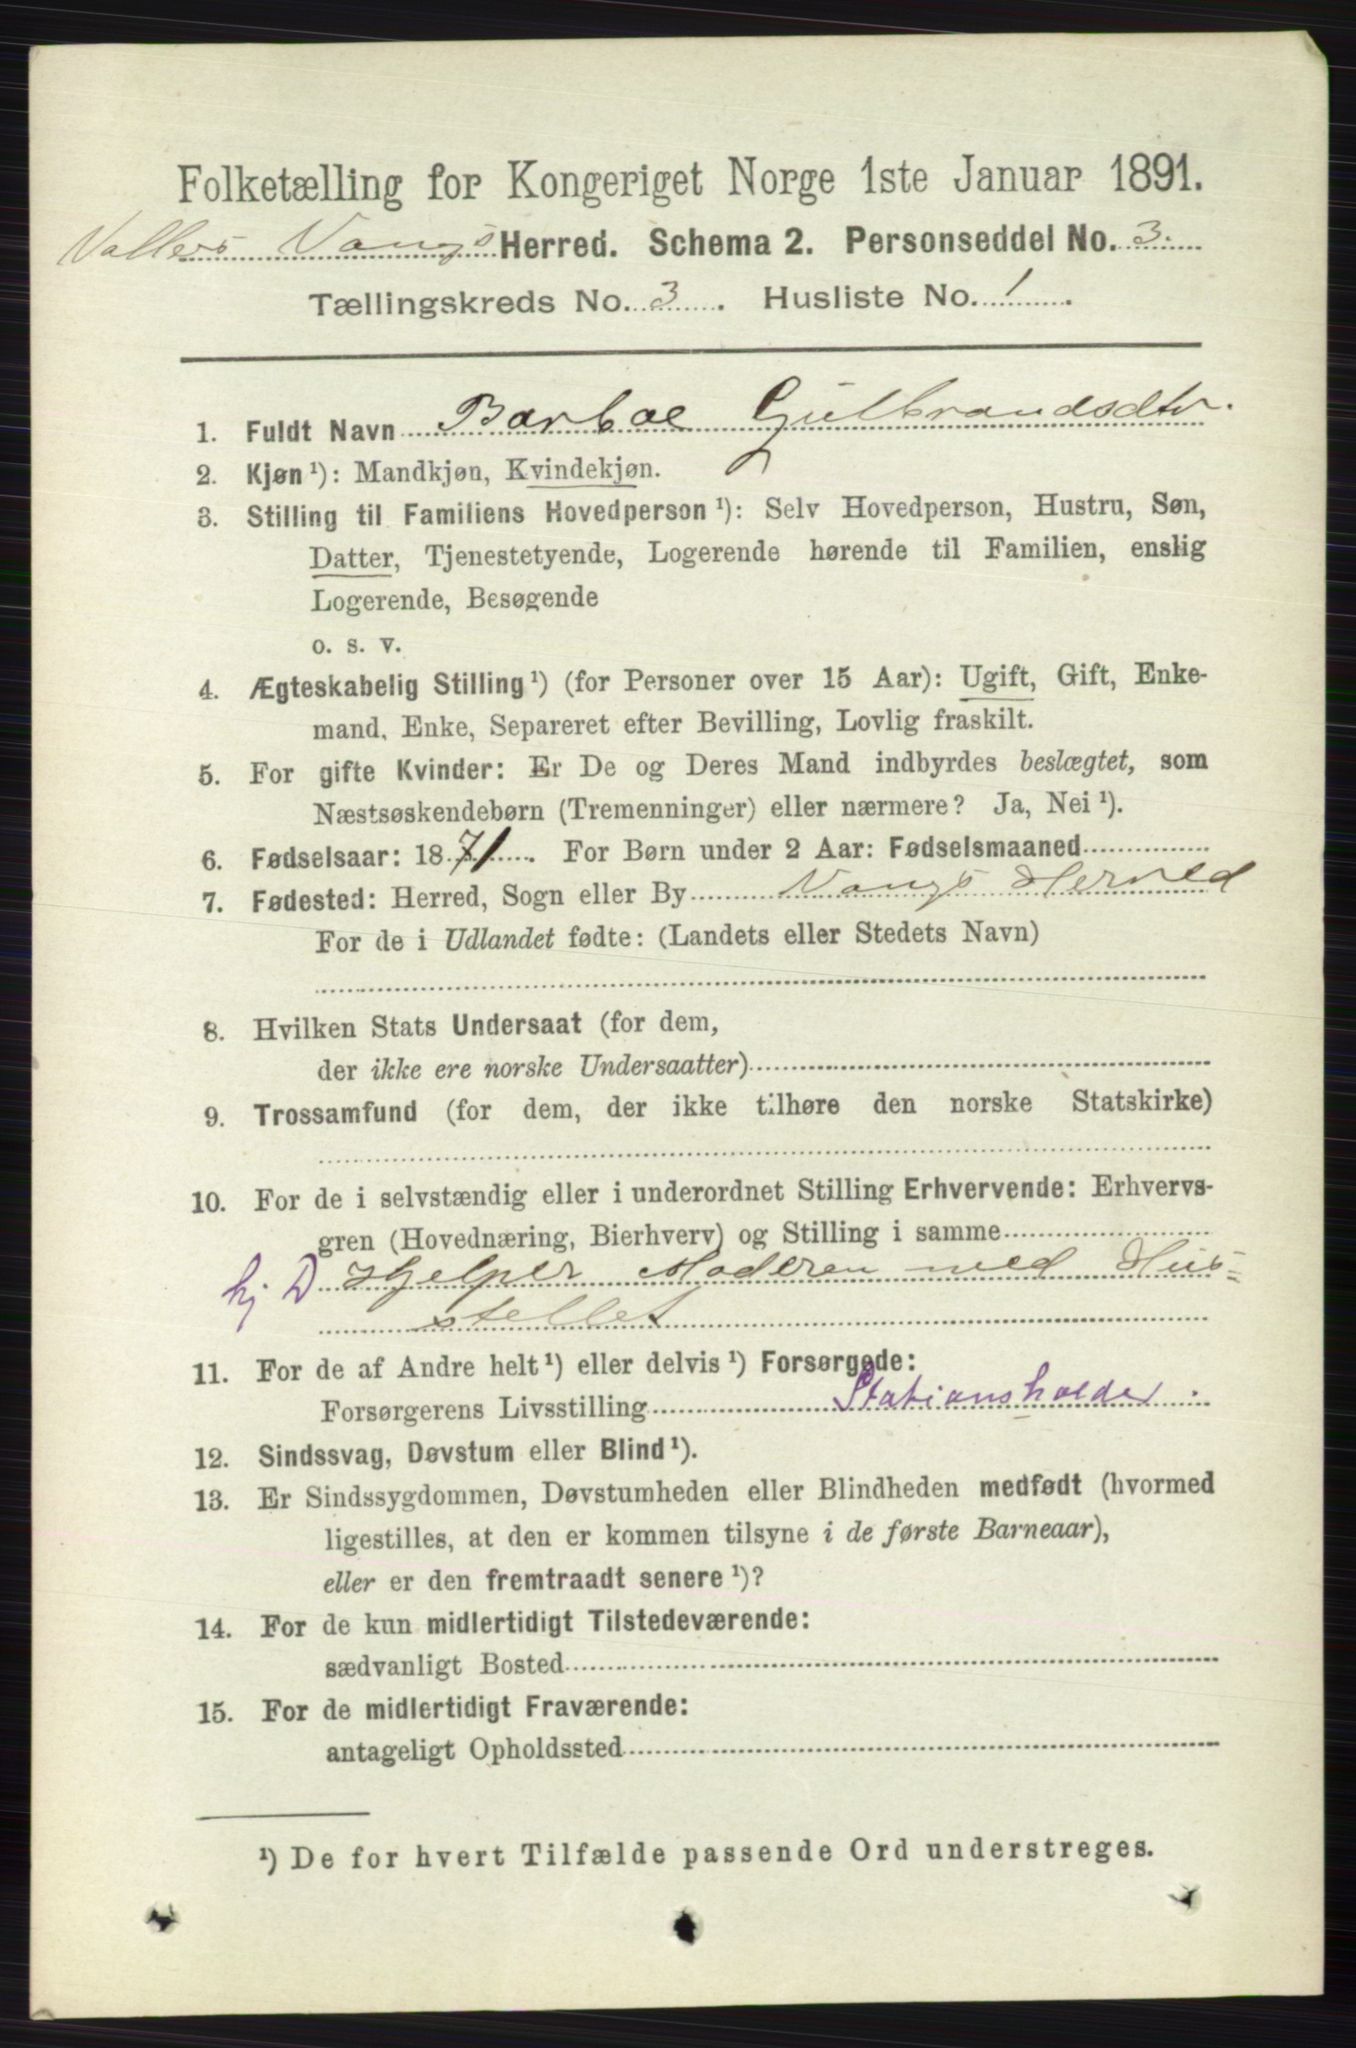 Folketælling for Kongeriget Norge 1ste Januar 1891.
Vallers Vangs Herred. Schema 2. Personseddel No. 3.
Tællingskreds No. 3. Husliste No. 1.
1. Fuldt Navn Barboe Gulbrandsdtr.
2. Kjøn¹): Mandkjøn, Kvindekjøn.
3. Stilling til Familiens Hovedperson¹): Selv Hovedperson, Hustru, Søn,
Datter, Tjenestetyende, Logerende hørende til Familien, enslig
Logerende, Besøgende
o. s. v.
4. Ægteskabelig Stilling¹) (for Personer over 15 Aar): Ugift, Gift, Enke-
mand, Enke, Separeret efter Bevilling, Lovlig fraskilt.
5. For gifte Kvinder: Er De og Deres Mand indbyrdes beslægtet, som
Næstsøskendebørn (Tremenninger) eller nærmere? Ja, Nei¹).
6. Fødselsaar: 1871. For Børn under 2 Aar: Fødselsmaaned
7. Fødested: Herred, Sogn eller By Vangs Herred
For de i Udlandet fødte: (Landets eller Stedets Navn)
8. Hvilken Stats Undersaat (for dem,
der ikke ere norske Undersaatter)
9. Trossamfund (for dem, der ikke tilhøre den norske Statskirke)
10. For de i selvstændig eller i underordnet Stilling Erhvervende: Erhvervs-
gren (Hovednæring, Bierhverv) og Stilling i samme
hj D Hjelper Moderen med Hus=
stellet
11. For de af Andre helt¹) eller delvis¹) Forsørgede:
Forsørgerens Livsstilling Stationsholder.
12. Sindssvag, Døvstum eller Blind¹).
13. Er Sindssygdommen, Døvstumheden eller Blindheden medfødt (hvormed
ligestilles, at den er kommen tilsyne i de første Barneaar),
eller er den fremtraadt senere¹)?
14. For de kun midlertidigt Tilstedeværende:
sædvanligt Bosted
15. For de midlertidigt Fraværende:
antageligt Opholdssted
¹) De for hvert Tilfælde passende Ord understreges.